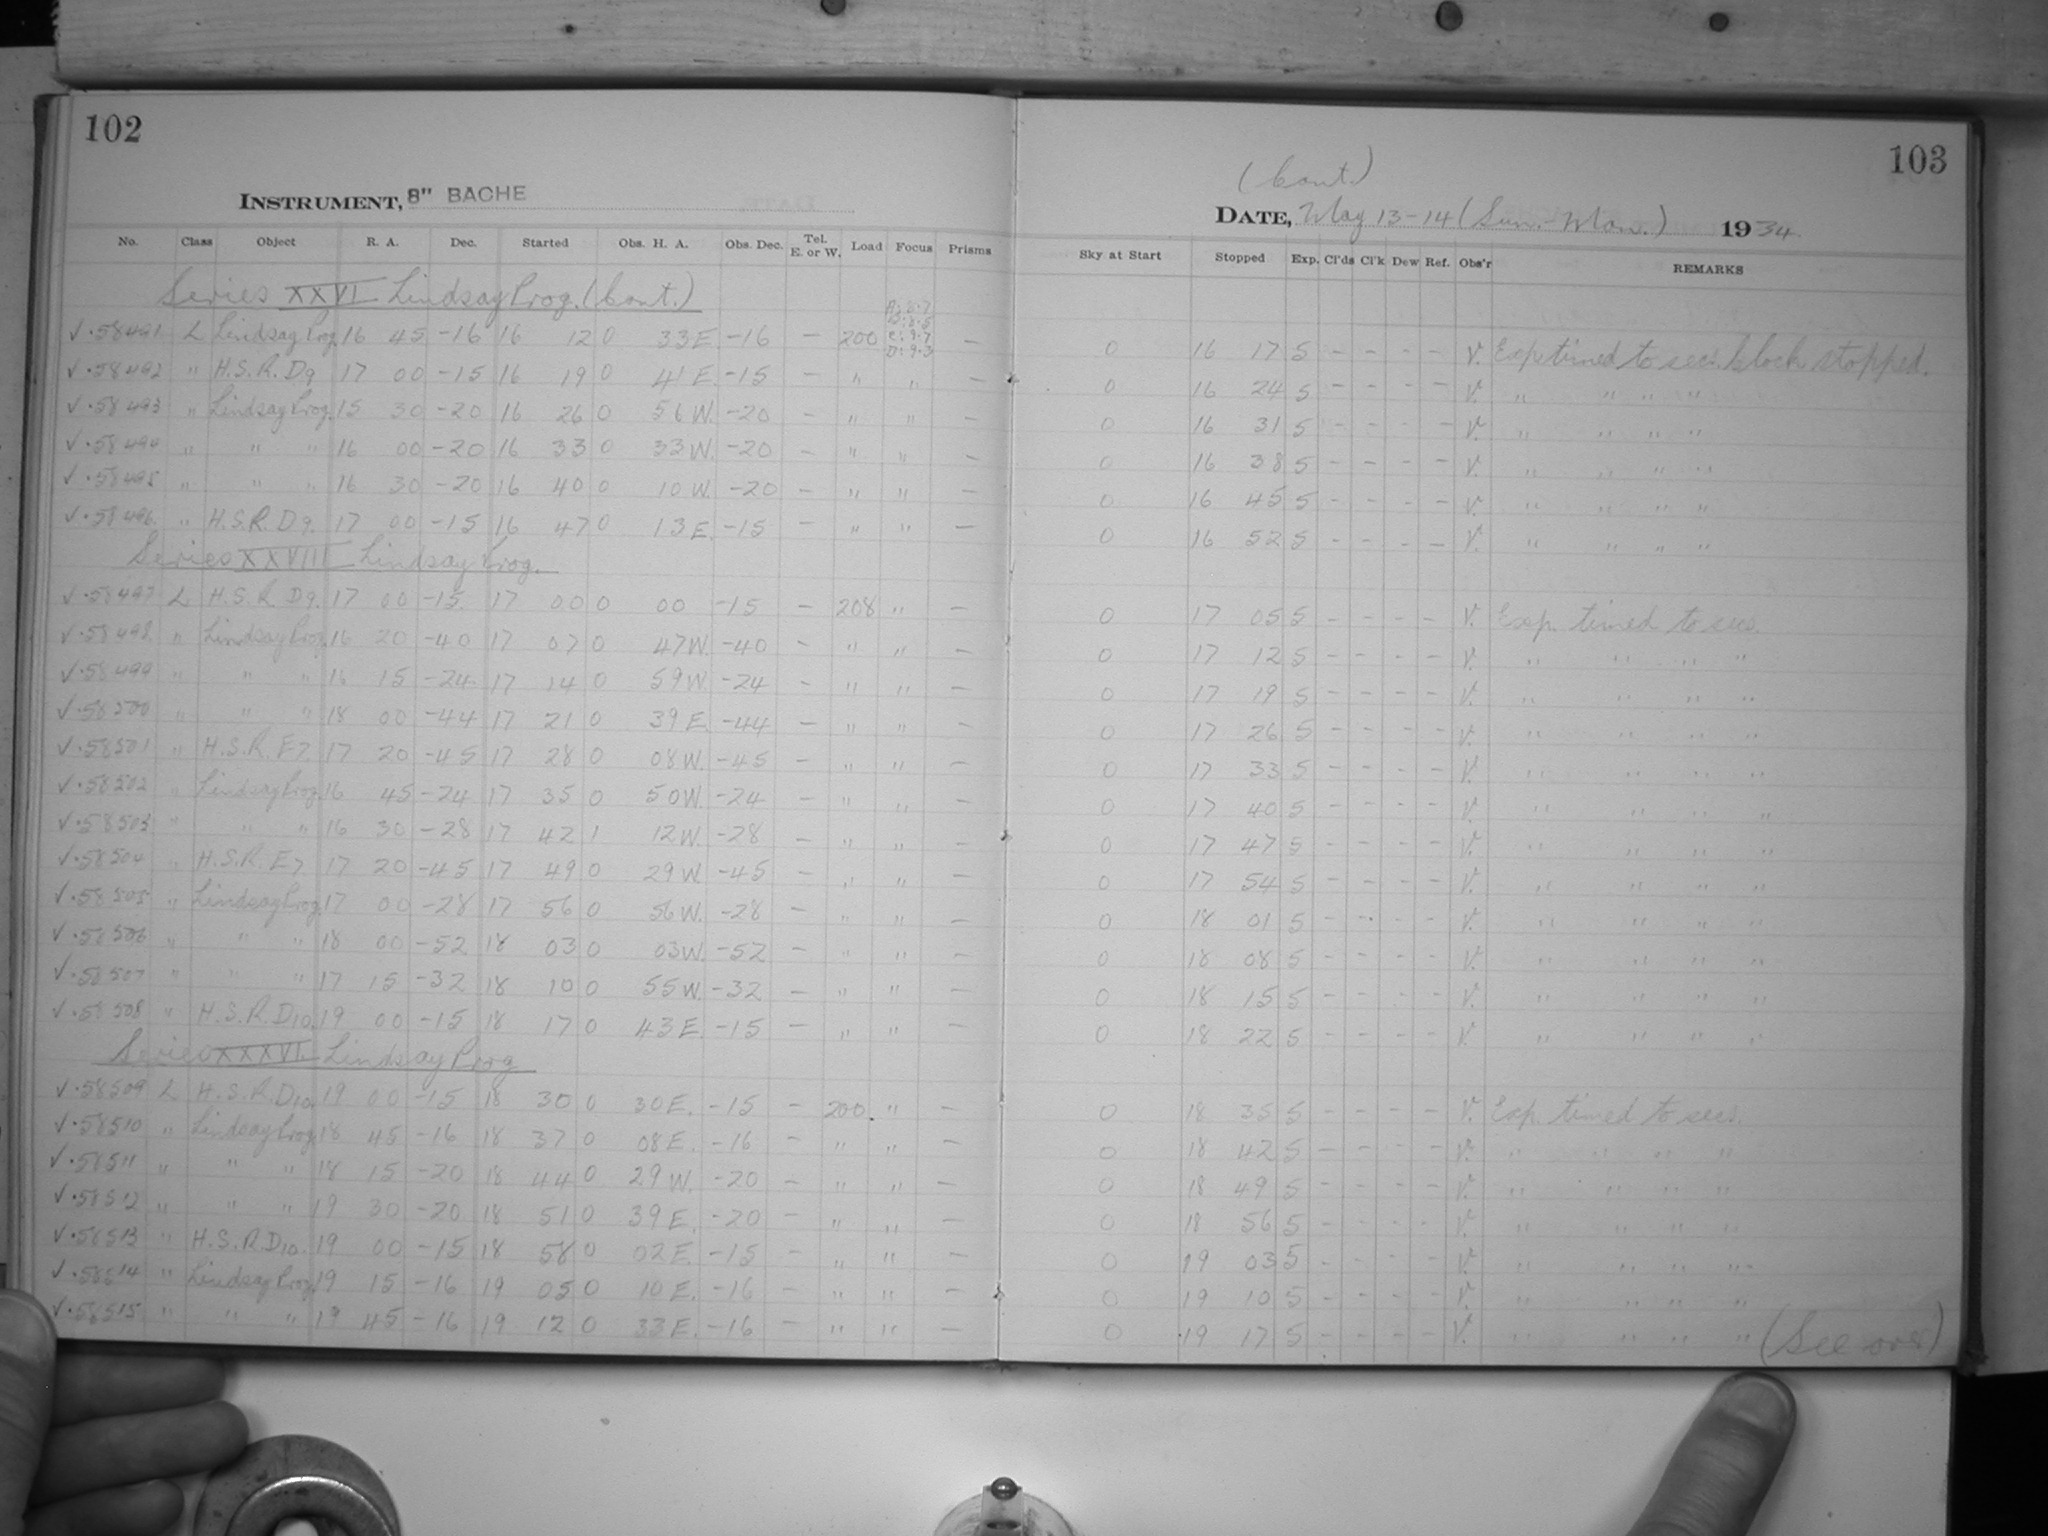 102
INSTRUMENT, 8" BACHE
No. Class Object R. A. Dec. Started Obs. H. A. Obs. Dec. Tel. E. or W. Load Focus Prisms
Series XXVI Lindsay Prog. (Cont.)
√·58491 L Lindsay Prog. 16 45 -16 16 12 0 33 E. -16 — 200 —
√·58492 " H.S.R. D9 17 00 -15 16 19 0 41 E. -15 — " " —
√·58493 " Lindsay Prog. 15 30 -20 16 26 0 56 W. -20 — " " —
√·58494 " " " 16 00 -20 16 33 0 33 W. -20 — " " —
√·58495 " " " 16 30 -20 16 40 0 10 W. -20 — " " —
√·58496 " H.S.R. D9. 17 00 -15 16 47 0 13 E. -15 — " " —
Series XXVIII Lindsay Prog.
√·58497 L H.S.R. D9. 17 00 -15. 17 00 0 00 -15 — 208 " —
√·58498 " Lindsay Prog. 16 20 -40 17 07 0 47 W. -40 — " " —
√·58499 " " " 16 15 -24 17 14 0 59 W. -24 — " " —
√·58500 " " " 18 00 -44 17 21 0 39 E. -44 — " " —
√·58501 " H.S.R. E7. 17 20 -45 17 28 0 08 W. -45 — " " —
√·58502 " Lindsay Prog. 16 45 -24 17 35 0 50 W. -24 — " " —
√·58503 " " " 16 30 -28 17 42 1 12 W. -28 — " " —
√·58504 " H.S.R. E7 17 20 -45 17 49 0 29 W. -45 — " " —
√·58505 " Lindsay Prog. 17 00 -28 17 56 0 56 W. -28 — " " —
√·58506 " " " 18 00 -52 18 03 0 03 W. -52 — " " —
√·58507 " " " 17 15 -32 18 10 0 55 W. -32 — " " —
√·58508 " H.S.R. D10. 19 00 -15 18 17 0 43 E. -15 — " " —
Series XXXVI. Lindsay Prog
√·58509 L H.S.R. D10. 19 00 -15 18 30 0 30 E. -15 — 200. " —
√·58510 " Lindsay Prog. 18 45 -16 18 37 0 08 E. -16 — " " —
√·58511 " " " 18 15 -20 18 44 0 29 W. -20 — " " —
√·58512 " " " 19 30 -20 18 51 0 39 E. -20 — " " —
√·58513 " H.S.R. D10. 19 00 -15 18 58 0 02 E. -15 — " " —
√·58514 " Lindsay Prog. 19 15 -16 19 05 0 10 E. -16 — " " —
√·58515 " " " 19 45 -16 19 12 0 33 E. -16 — " " —
103
(Cont.)
DATE, May 13-14 (Sun.-Mon.) 1934.
Sky at Start Stopped Exp. Cl'ds Cl'k Dew Ref. Obs'r REMARKS
0 16 17 5 - - - - V. Exp timed to secs. Clock stopped.
0 16 24 5 - - - - V. " " " "
0 16 31 5 - - - - V. " " " "
0 16 38 5 - - - - V. " " " "
0 16 45 5 - - - - V. " " " "
0 16 52 5 - - - - V. " " " "
0 17 05 5 - - - - V. Exp. timed to secs.
0 17 12 5 - - - - V. " " " "
0 17 19 5 - - - - V. " " " "
0 17 26 5 - - - - V. " " " "
0 17 33 5 - - - - V. " " " "
0 17 40 5 - - - - V. " " " "
0 17 47 5 - - - - V. " " " "
0 17 54 5 - - - - V. " " " "
0 18 01 5 - - - - V. " " " "
0 18 08 5 - - - - V. " " " "
0 18 15 5 - - - - V. " " " "
0 18 22 5 - - - - V. " " " "
0 18 35 5 - - - - V. Exp. timed to secs.
0 18 42 5 - - - - V. " " " "
0 18 49 5 - - - - V. " " " "
0 18 56 5 - - - - V. " " " "
0 19 03 5 - - - - V. " " " "
0 19 10 5 - - - - V. " " " "
0 19 17 5 - - - - V. " " " " (See over)